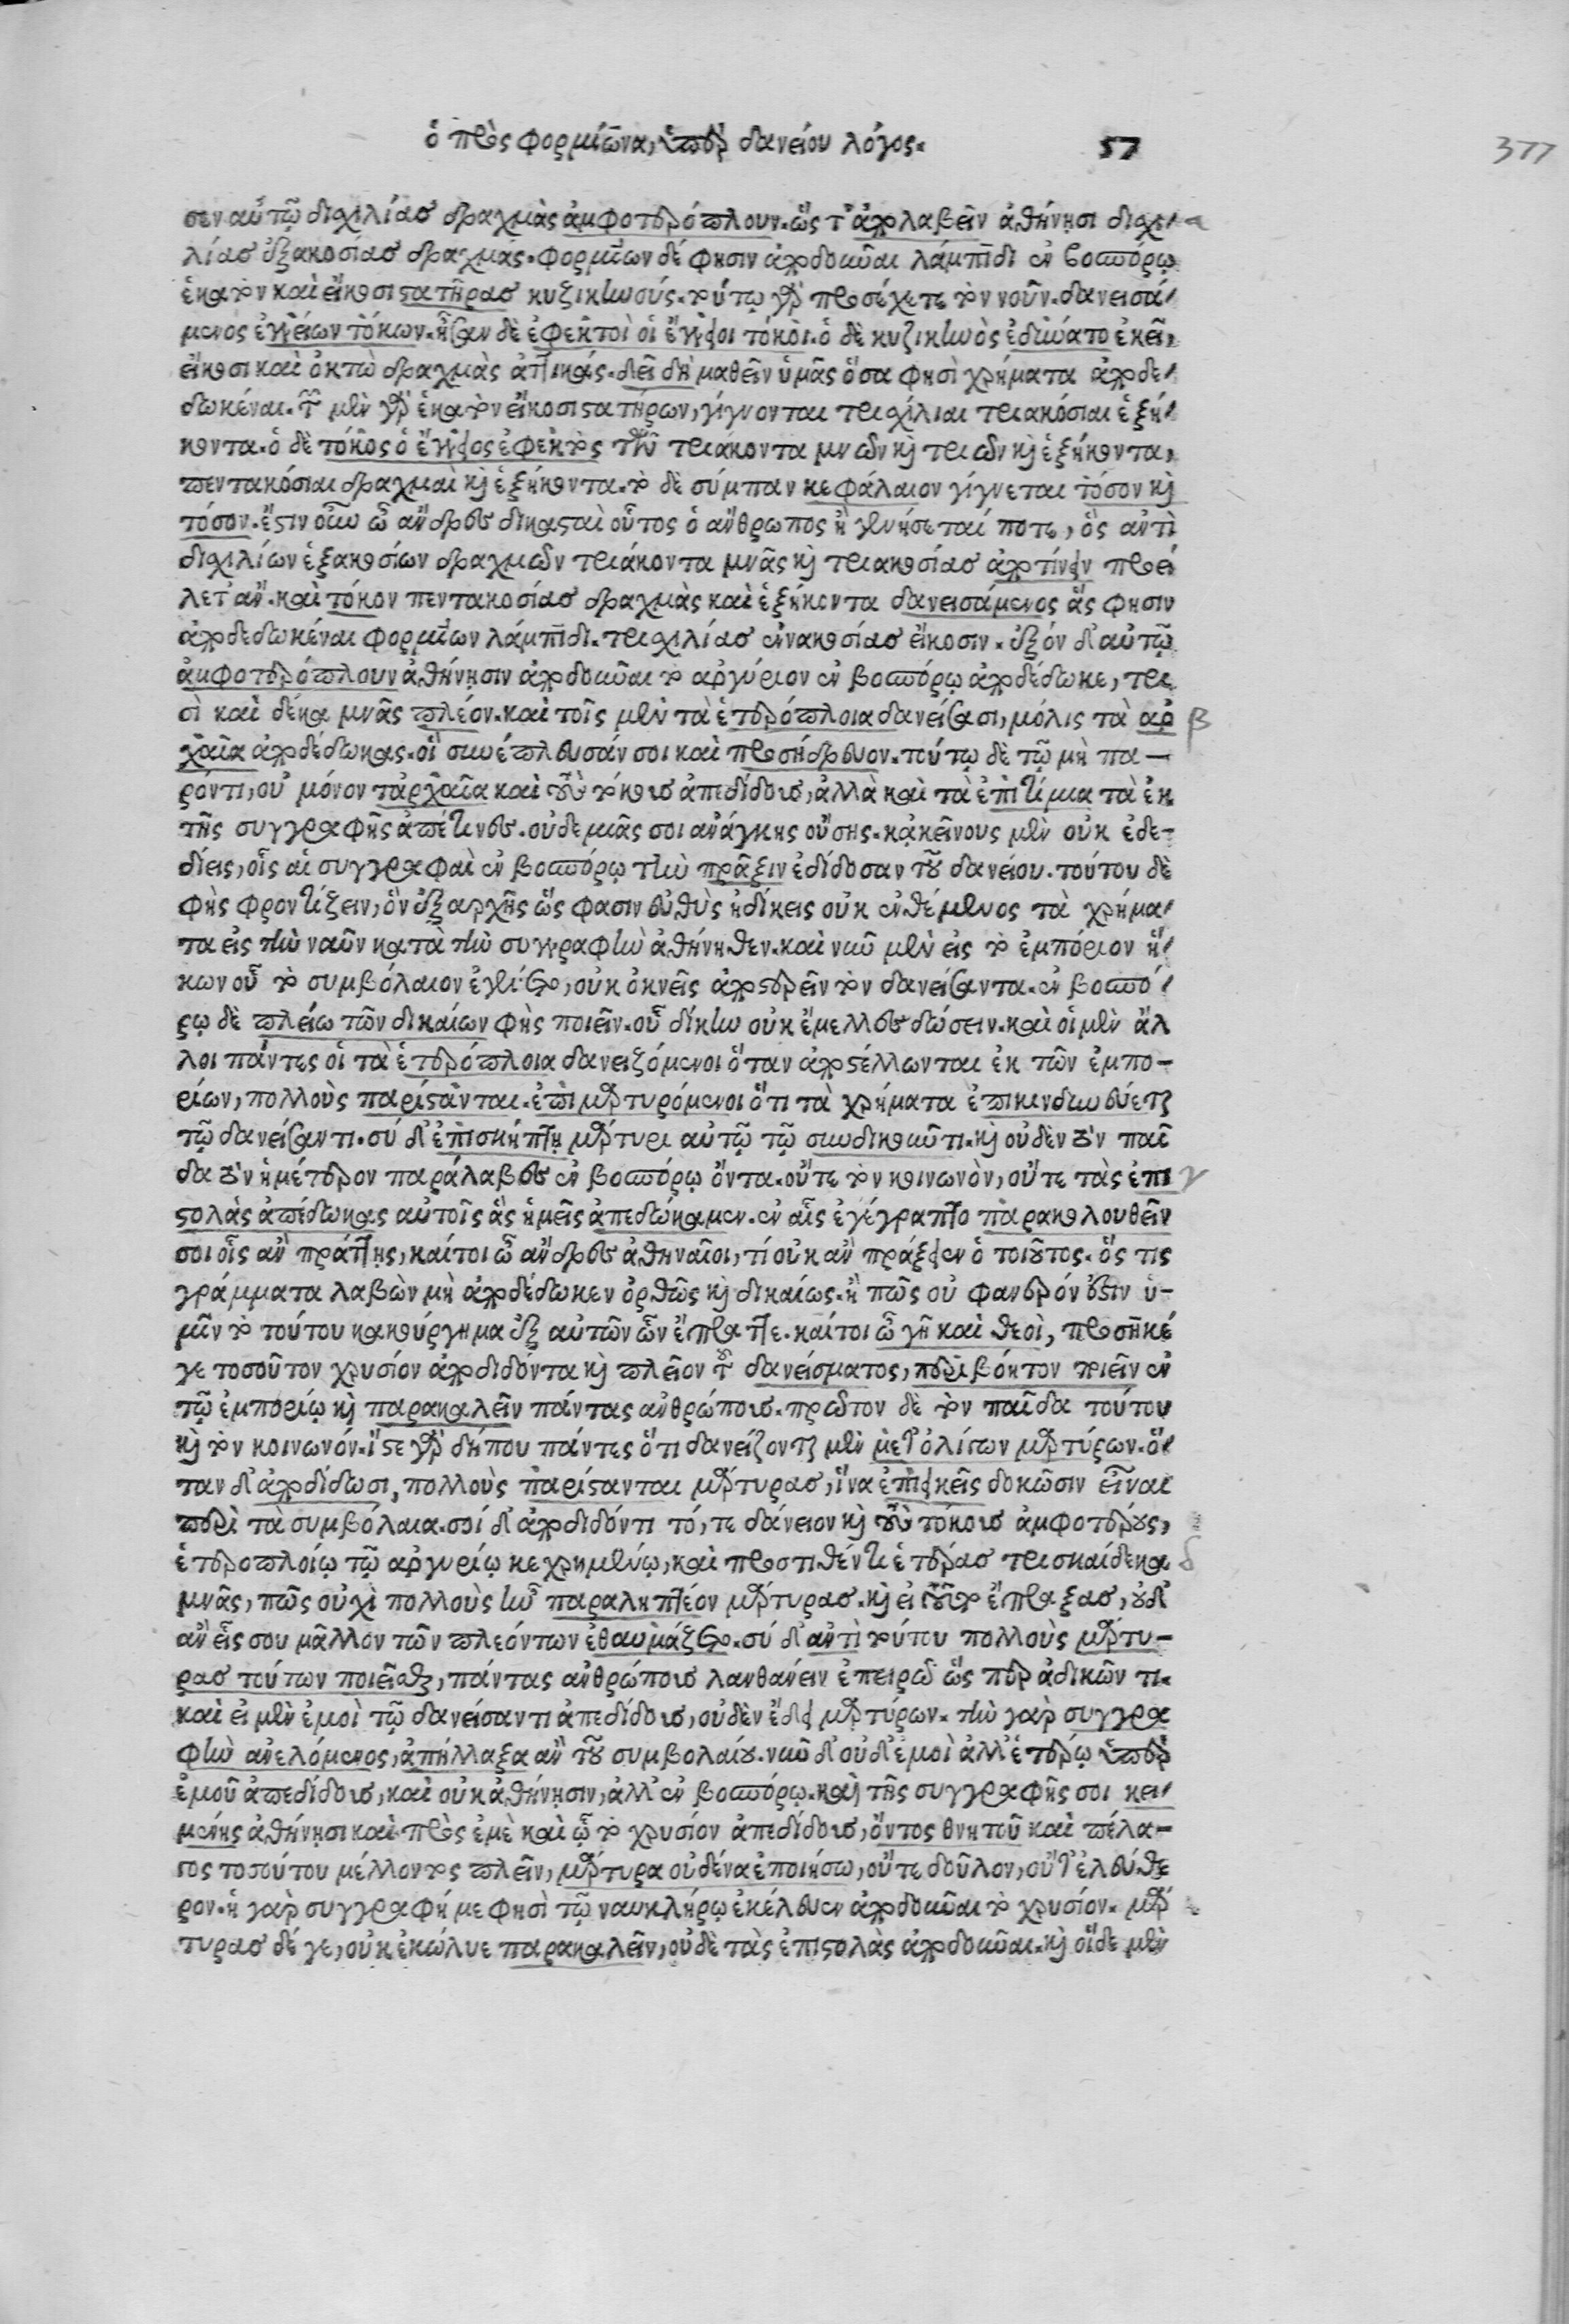 ὁ πρὸς φορμίωνα, ὑπὲρ δανείου λόγος. 57
377
σεν αὐτῷ διχιλίας δραχμὰς ἀμφοτερόπλουν. ὥς τ' ἀπολαβεῖν ἀθήνησι διχι- α
λίας ἑξακοσίας δραχμάς. φορμίων δέ φησιν ἀποδοῦναι λάμπιδι ἐν βοσπόρῳ
ἑκατὸν καὶ εἴκοσι στατῆρας κυζικηνούς. τούτῳ γὰρ προσέχετε τὸν νοῦν. δανεισά-
μενος ἐγγείων τόκων. ἦσαν δὲ ἐφεκτοὶ οἱ ἔγγειοι τόκοι. ὁ δὲ κυζικηνὸς ἐδύνατο ἐκεῖ,
εἴκοσι καὶ ὀκτὼ δραχμὰς ἀττικάς. δεῖ δὴ μαθεῖν ὑμᾶς ὅσα φησὶ χρήματα ἀποδε-
δωκέναι. τῶν μὲν γὰρ ἑκατὸν εἴκοσι στατήρων, γίγνονται τριχίλιαι τριακόσιαι ἑξή-
κοντα. ὁ δὲ τόκος ὁ ἔγγειος ἐφεκτὸς τῶν τριάκοντα μνῶν καὶ τριῶν καὶ ἑξήκοντα,
πεντακόσιαι δραχμαὶ καὶ ἑξήκοντα. τὸ δὲ σύμπαν κεφάλαιον γίγνεται τόσον καὶ
τόσον. ἔστιν οὖν ὦ ἄνδρες δικασταὶ οὗτος ὁ ἄνθρωπος ἢ γενήσεταί ποτε, ὃς ἀντὶ
διχιλίων ἑξακοσίων δραχμῶν τριάκοντα μνᾶς καὶ τριακοσίας ἀποτίνειν προεί
λετ' ἄν. καὶ τόκον πεντακοσίας δραχμὰς καὶ ἑξήκοντα δανεισάμενος ἅς φησιν
ἀποδεδωκέναι φορμίων λάμπιδι. τριχιλίας ἐνακοσίας εἴκοσιν. ἐξὸν δ' αὐτῷ
ἀμφοτερόπλουν ἀθήνησιν ἀποδοῦναι τὸ ἀργύριον ἐν βοσπόρῳ ἀποδέδωκε, τρι
σὶ καὶ δέκα μνᾶς πλέον. καὶ τοῖς μὲν τὰ ἑτερόπλοια δανείσασι, μόλις τὰ ἀρ β
χαῖα ἀποδέδωκας. οἳ συνέπλευσάν σοι καὶ προσήδρευον. τούτῳ δὲ τῷ μὴ πα-
ρόντι, οὐ μόνον τἀρχαῖα καὶ τοὺς τόκους ἀπεδίδους, ἀλλὰ καὶ τὰ ἐπιτίμια τὰ ἐκ
τῆς συγγραφῆς ἀπέτινες. οὐδεμιᾶς σοι ἀνάγκης οὔσης. κἀκείνους μὲν οὐκ ἐδε-
δίεις, οἷς αἱ συγγραφαὶ ἐν βοσπόρῳ τὴν πρᾶξιν ἐδίδοσαν τοῦ δανείου. τούτου δὲ
φὴς φροντίζειν, ὃν ἐξ ἀρχῆς ὥς φασιν εὐθὺς ἠδίκεις οὐκ ἐνθέμενος τὰ χρήμα-
τα εἰς τὴν ναῦν κατὰ τὴν συγγραφὴν ἀθήνηθεν. καὶ νῦν μὲν εἰς τὸ ἐμπόριον ἥ-
κων οὗ τὸ συμβόλαιον ἐγένετο, οὐκ ὀκνεῖς ἀποστερεῖν τὸν δανείσαντα. ἐν βοσπό-
ρῳ δὲ πλείω τῶν δικαίων φὴς ποιεῖν. οὗ δίκην οὐκ ἔμελλες δώσειν. καὶ οἱ μὲν ἄλ
λοι πάντες οἱ τὰ ἑτερόπλοια δανειζόμενοι ὅταν ἀποστέλλωνται ἐκ τῶν ἐμπο-
ρίων, πολλοὺς παρίστανται. ἐπιμαρτυρόμενοι ὅτι τὰ χρήματα ἐπικινδυνεύεται
τῷ δανείσαντι. σύ δ' ἐπισκήπτῃ μάρτυρι αὐτῷ τῷ συνδικοῦντι. καὶ οὐδὲν τὸν παῖ
δα τὸν ἡμέτερον παράλαβες ἐν βοσπόρῳ ὄντα. οὔτε τὸν κοινωνὸν, οὔτε τὰς ἐπι γ
στολὰς ἀπέδωκας αὐτοῖς ἃς ἡμεῖς ἀπεδώκαμεν. ἐν αἷς ἐγέγραπτο παρακολουθεῖν
σοι οἷς ἂν πράττῃς, καίτοι ὦ ἄνδρες ἀθηναῖοι, τί οὐκ ἂν πράξειεν ὁ τοιοῦτος. ὅς τις
γράμματα λαβὼν μὴ ἀποδέδωκεν ὀρθῶς καὶ δικαίως. ἢ πῶς οὐ φανερόν ἐστιν ὑ-
μῖν τὸ τούτου κακούργημα ἐξ αὐτῶν ὧν ἔπραττε. καίτοι ὦ γῆ καὶ θεοὶ, προσῆκέ
γε τοσοῦτον χρυσίον ἀποδιδόντα καὶ πλεῖον τοῦ δανείσματος, περιβόητον ποιεῖν ἐν
τῷ ἐμπορίῳ καὶ παρακαλεῖν πάντας ἀνθρώπους. πρῶτον δὲ τὸν παῖδα τούτου
καὶ τὸν κοινωνόν. ἴστε γὰρ δήπου πάντες ὅτι δανείζονται μὲν μετ' ὀλίγων μαρτύρων. ὅ-
ταν δ' ἀποδίδωσι, πολλοὺς παρίστανται μάρτυρας, ἵνα ἐπιεικεῖς δοκῶσιν εἶναι
περὶ τὰ συμβόλαια. σοί δ' ἀποδιδόντι τό, τε δάνειον καὶ τοὺς τόκους ἀμφοτέρους,
ἑτεροπλοίῳ τῷ ἀργυρίῳ κεχρημένῳ, καὶ προστιθέντι ἑτέρας τρισκαίδεκα δ
μνᾶς, πῶς οὐχὶ πολλοὺς ἦν παραληπτέον μάρτυρας. καὶ εἰ τοῦτο ἔπραξας, οὐδ'
ἂν εἷς σου μᾶλλον τῶν πλεόντων ἐθαυμάζετο. σύ δ' ἀντὶ τούτου πολλοὺς μάρτυ-
ρας τούτων ποιεῖσθαι, πάντας ἀνθρώπους λανθάνειν ἐπειρῶ ὥς περ ἀδικῶν τι.
καὶ εἰ μὲν ἐμοὶ τῷ δανείσαντι ἀπεδίδους, οὐδὲν ἔδει μαρτύρων. τὴν γὰρ συγγρα
φὴν ἀνελόμενος, ἀπήλλαξα ἂν τοῦ συμβολαίου. νῦν δ' οὐδ' ἐμοὶ ἀλλ' ἑτέρῳ ὑπὲρ
ἐμοῦ ἀπεδίδους, καὶ οὐκ ἀθήνησιν, ἀλλ' ἐν βοσπόρῳ. καὶ τῆς συγγραφῆς σοι κει-
μένης ἀθήνησι καὶ πρὸς ἐμὲ καὶ ᾧ τὸ χρυσίον ἀπεδίδους, ὄντος θνητοῦ καὶ πέλα-
γος τοσούτου μέλλοντος πλεῖν, μάρτυρα οὐδένα ἐποιήσω, οὔτε δοῦλον, οὔτ' ἐλεύθε
ρον. ἡ γὰρ συγγραφή με φησὶ τῷ ναυκλήρῳ ἐκέλευεν ἀποδοῦναι τὸ χρυσίον. μάρ
τυρας δέ γε, οὐκ ἐκώλυε παρακαλεῖν, οὐδὲ τὰς ἐπιστολὰς ἀποδοῦναι. καὶ οἵδε μὲν